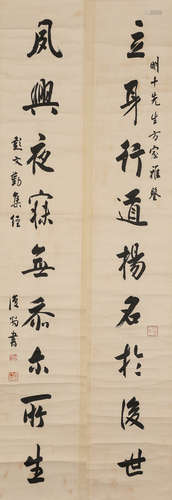 立身行道揚名於後世
明十先生方家雅鑒
夙興夜寐無忝尔所生
彭文勤集經
漢翁書